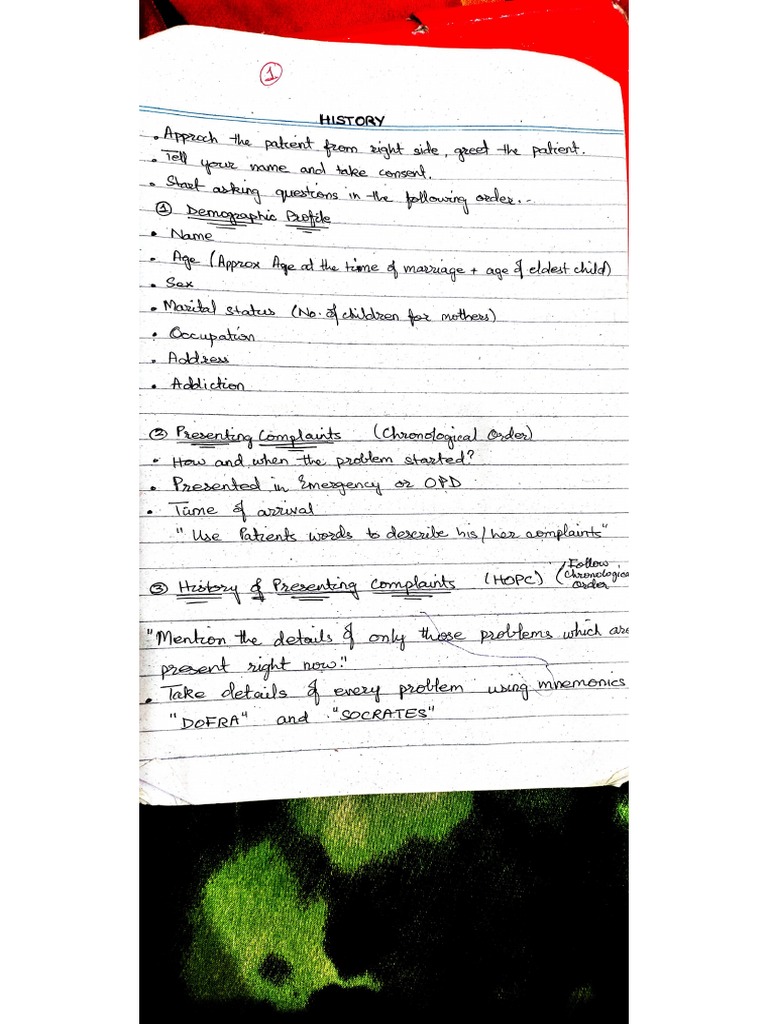 1
HISTORY
• Approch the patient from right side, greet the patient.
• Tell your name and take consent.
• Start asking questions in the following order..-
① Demographic Profile
• Name
• Age (Approx Age at the time of marriage + age of eldest child)
• Sex
• Marital status (No. of children for mothers)
• Occupation
• Address
• Addiction
② Presenting Complaints (Chronological Order)
• How and when the problem started?
• Presented in Emergency or OPD
• Time of arrival
" Use Patients words to describe his/her complaints"
③ History of Presenting Complaints (HOPC) (Follow Chronological Order
"Mention the details of only those problems which are
present right now."
• Take details of every problem using mnemonics
"DOFRA" and "SOCRATES"